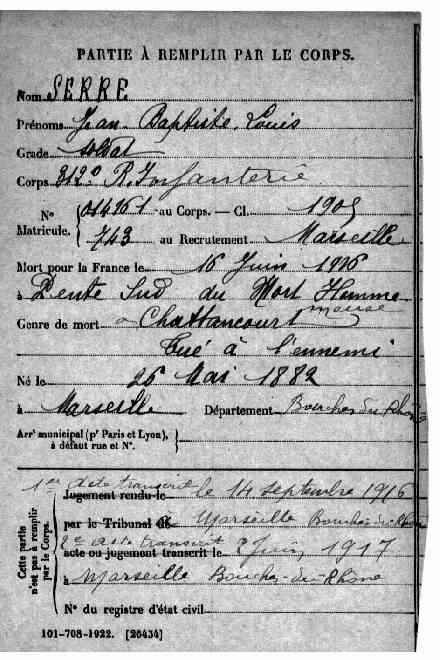 PARTIE À REMPLIR PAR LE CORPS.
Nom SERRE
Prénoms Jean Baptiste Louis
Grade soldat
Corps 312e R. Infanterie
No Matricule. { 014161 au Corps. — Cl. 1905
743 au Recrutement Marseille
Mort pour la France le 16 Juin 1916
à Pente Sud du Mort Homme
Genre de mort Chattancourt Meuse
Tué à l'ennemi
Né le 26 Mai 1882
à Marseille Département Bouches du Rhône
Arrt municipal (pr Paris et Lyon), à défaut rue et No. }
Cette partie n'est pas à remplir par le Corps.
1er acte transcrit
Jugement rendu le le 14 septembre 1916
par le Tribunal de Marseille Bouches-du-Rhône
2e acte transcrit
acte ou jugement transcrit le Juin 1917
à Marseille Bouches-du-Rhône
No du registre d'état civil
101-708-1922. [26434]